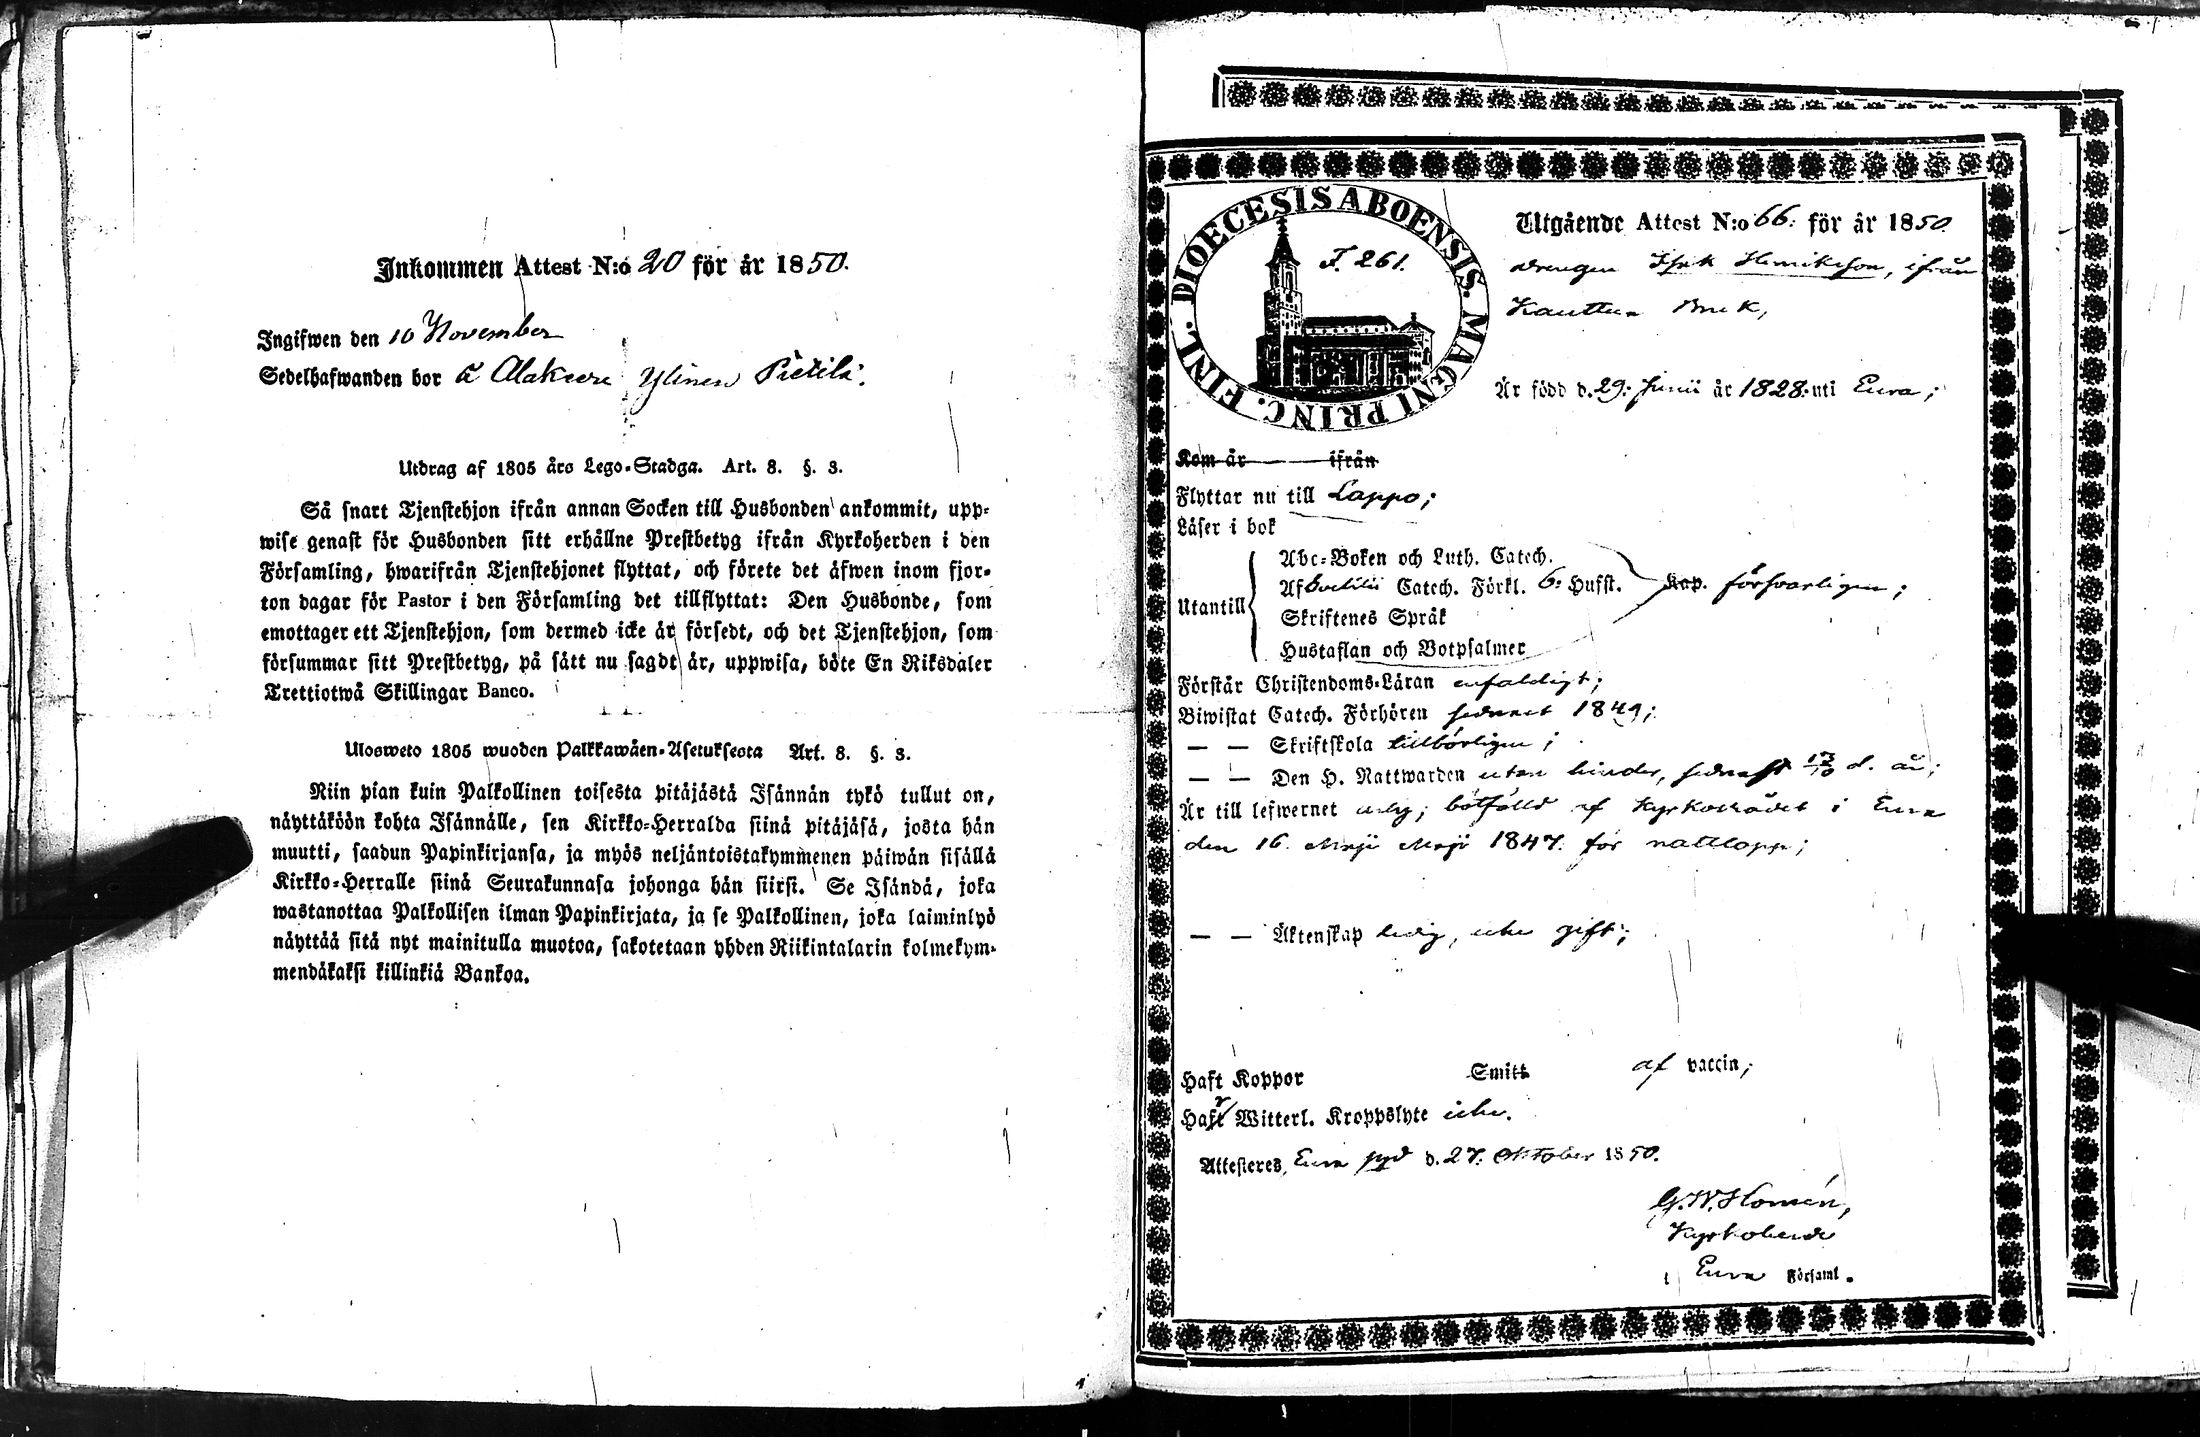 Inkommen Attest N:o 20 för år 1850.
Ingifwen den 10 November
Sedelhafwanden bor å Alakeere Ylinen Pietilä.
Utdrag af 1805 års Lego-Stadga. Art. 8. §. 3.
Så snart Tjenstehjon ifrån annan Socken till Husbonden ankommit, upp-
wise genast för Husbonden sitt erhållne Prestbetyg ifrån Kyrkoherden i den
Församling, hwarifrån Tjenstehjonet flyttat, och förete det äfwen inom fjor-
ton dagar för Pastor i den Församling det tillflyttat: Den Husbonde, som
emottager ett Tjenstehjon, som dermed icke är försedt, och det Tjenstehjon, som
försummar sitt Prestbetyg, på sätt nu sagdt är, uppwisa, böte En Riksdaler
Trettiotwå Skillingar Banco.
Ulosweto 1805 wuoden Palkkawäen-Asetuksesta Art. 8. §. 3.
Niin pian kuin Palkollinen toisesta pitäjästä Isännän tykö tullut on,
näyttäköön kohta Isännälle, sen Kirkko-Herralda siinä pitäjäsä, josta hän
muutti, saadun Papinkirjansa, ja myös neljäntoistakymmenen päiwän sisällä
Kirkko-Herralle siinä Seurakunnasa johonga hän siirsi. Se Isändä, joka
wastanottaa Palkollisen ilman Papinkirjata, ja se Palkollinen, joka laiminlyö
näyttää sitä nyt mainitulla muotoa, sakotetaan yhden Riikintalarin kolmekym-
mendäkaksi killinkiä Bankoa.
DIOECESIS ABOENSIS. MAGNI PRINC. FINL.
F. 261.
Utgående Attest N:o 66: för år 1850
drengen Isak Henriksson, ifrån
Kauttua Bruk,
Är född d. 29: Junii år 1828: uti Eura;
Kom år ifrån
Flyttar nu till Lappo;
Läser i bok
Abc-Boken och Luth. Catech.
Utantill Af Svebilii Catech. Förkl. 6: Hufst. Kap. försvarligen;
Skriftenes Språk
Hustaflan och Botpsalmer
Förstår Christendoms-Läran enfaldigt;
Biwistat Catech. Förhören sednast 1849;
— — Skriftskola tillbörligen;
— — Den H. Nattwarden utan hinder, sednast 13/10 d. år;
Är till lefwernet ärlig; bötfälld af Kyrkorådet i Eura
den 16. Maji Maji 1847. för nattlopp;
— — Äktenskap ledig, icke gift;
Haft Koppor Smitt af vaccin;
Har Witterl. Kroppslyte icke.
Attesteres, Eura pgd d. 27: Oktober 1850.
G. W. Homén,
Kyrkoherde
i Eura Församl.